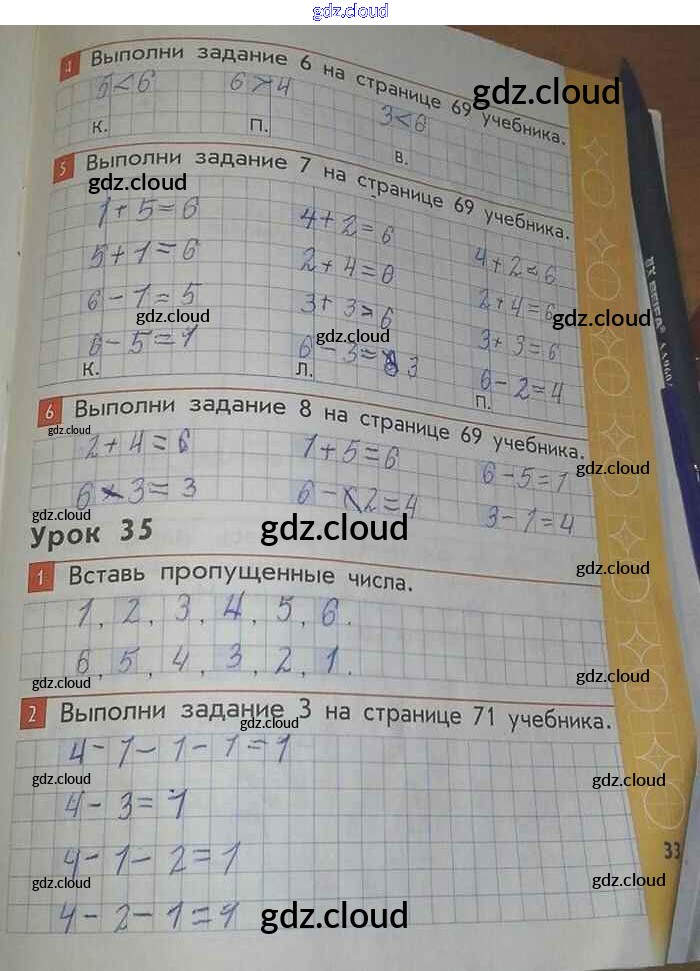 gdz.cloud
4 Выполни задание 6 на странице 69 учебника.
5<6 6>4 3<6
gdz.cloud
К. П. В.
5 Выполни задание 7 на странице 69 учебника.
gdz.cloud
1+5=6 4+2=6 4+2=6
5+1=6 2+4=6 2+4=6
6-1=5 3+3=6 3+3=6
gdz.cloud gdz.cloud gdz.cloud
6-5=1 6-3=3 6-2=4
К. Л. П.
6 Выполни задание 8 на странице 69 учебника.
gdz.cloud
2+4=6 1+5=6 6-5=1
gdz.cloud
6-3=3 6-2=4 3-1=4
gdz.cloud
Урок 35
gdz.cloud
gdz.cloud
1 Вставь пропущенные числа.
1, 2, 3, 4, 5, 6.
6, 5, 4, 3, 2, 1.
gdz.cloud gdz.cloud
2 Выполни задание 3 на странице 71 учебника.
gdz.cloud
4-1-1-1=1
gdz.cloud gdz.cloud
4-3=1
4-1-2=1
33
gdz.cloud gdz.cloud
4-2-1=1
gdz.cloud